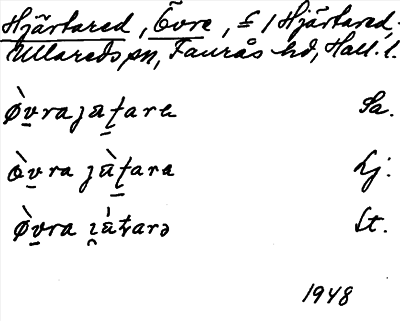 Hjärtared, Övre, f / Hjärtared,
Ullareds sn, Faurås hd, Hall. l.
ø̀v̠rajät̠are Sa.
ø̀v̠ra jä̀t̠ara Lj.
ø̀v̠ra ı̯ä́t̠arə St.
1948